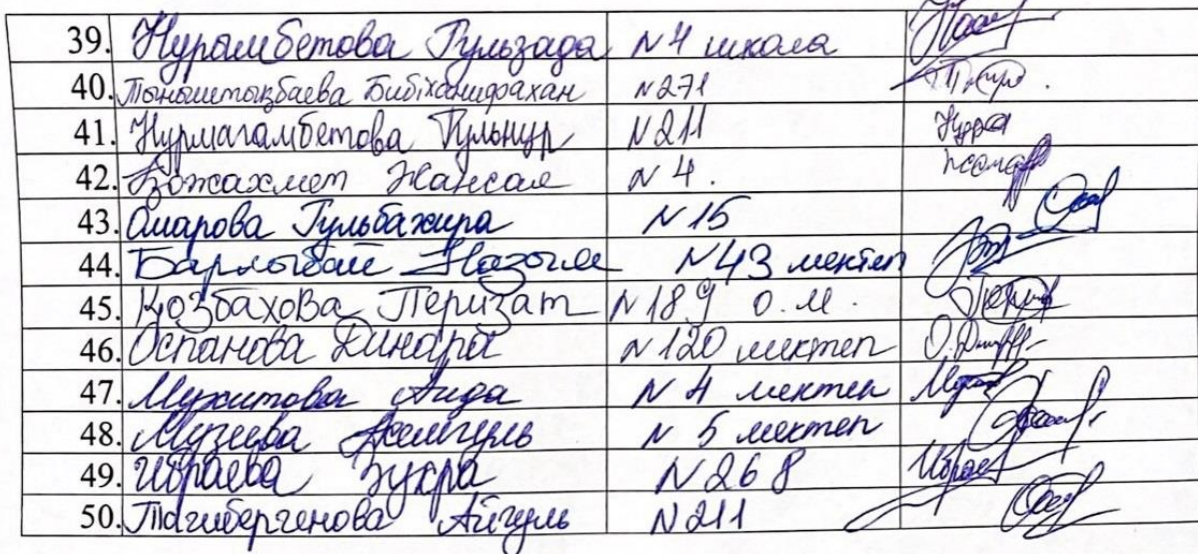 39. Нурымбетова Гульзада №4 школа
40. Тыныштықбаева Бибіхашифахан №271
41. Нурмагамбетова Гульнур №211
42. Божахмет Жансая №4.
43. Омарова Гульбахира №15
44. Барлыбай Назгүл №43 мектеп
45. Қозбахова Перизат №189 о.м.
46. Оспанова Динара №120 мектеп О.Дин
47. Мухитова Аида №4 мектеп
48. Музеева Асемгуль №5 мектеп
49. Ибраева Зухра №268 Ибрае
50. Тагибергенова Айгуль №211